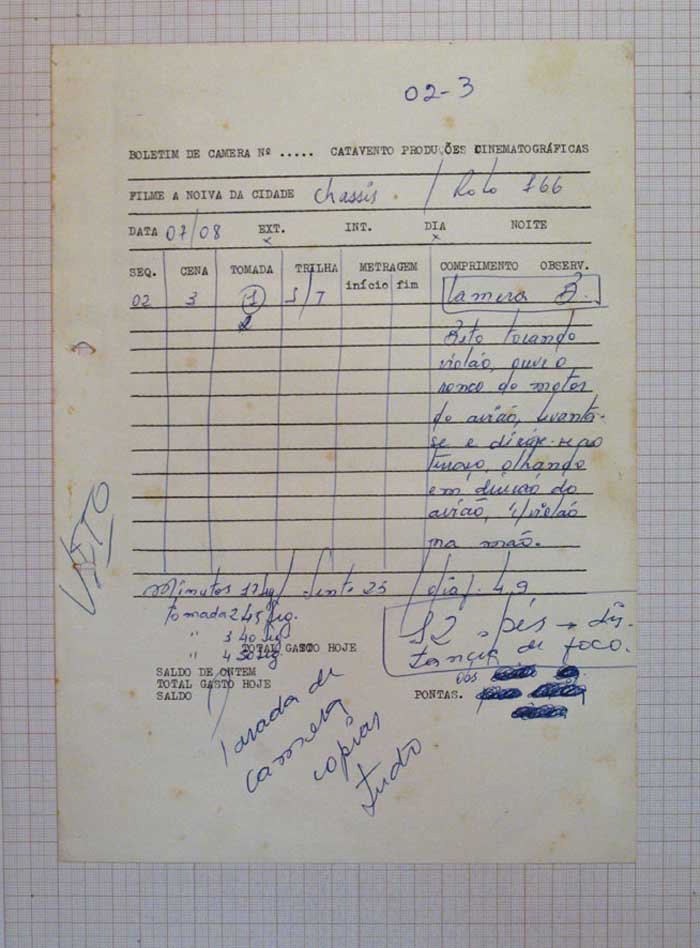 02-3
BOLETIM DE CAMERA Nº ..... CATAVENTO PRODUÇÕES CINEMATOGRÁFICAS
FILME A NOIVA DA CIDADE Chassis / Rolo 166
DATA 07/08 EXT. INT. DIA NOITE
x x
SEQ. CENA TOMADA TRILHA METRAGEM COMPRIMENTO OBSERV.
início fim
02 3 1 S/T Camera B.
2
tocando
violão, ouve o
ronco do motor
do avião, levanta-
se e dirige-se ao
olhando
em direção do
avião, c/violão
na mão.
VISTO
Minutos 17 lente 25 / diaf. 4,9
tomada 2 45 fg.
" 3 40
" 4 30
12 pés → dis
tancia de foco.
TOTAL GASTO HOJE
SALDO DE ONTEM
TOTAL GASTO HOJE
SALDO
obs
PONTAS.
Parada de
camera
copias
tudo